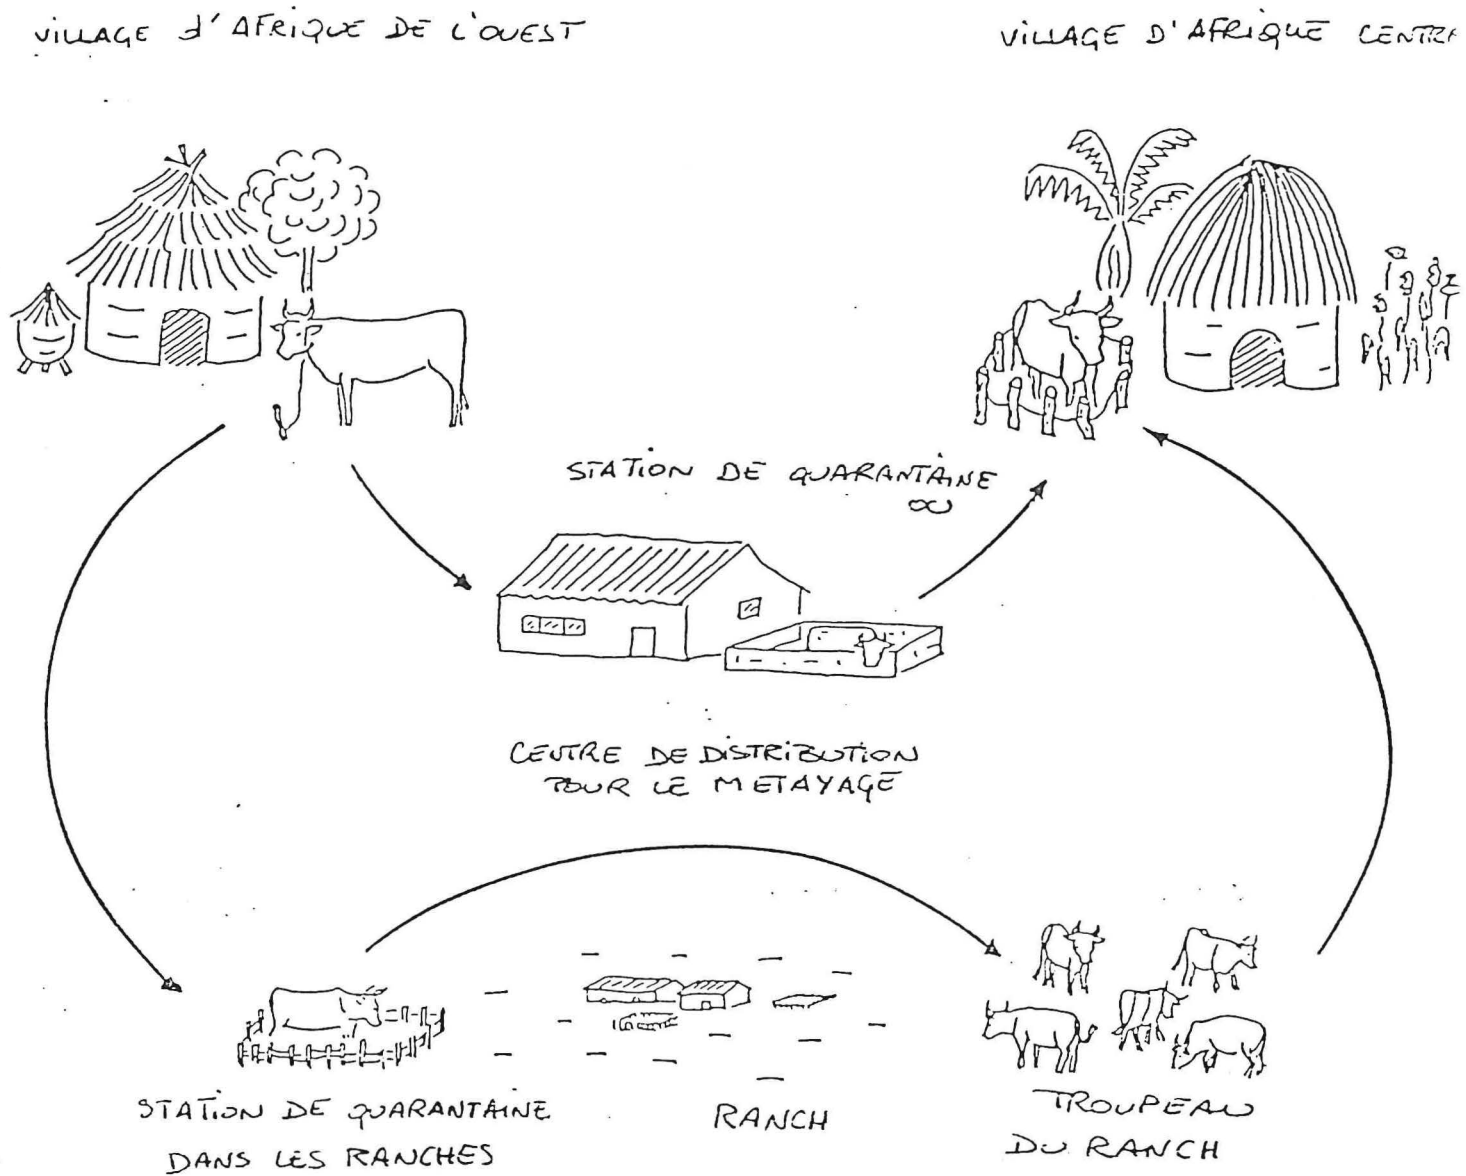 VILLAGE d'AFRIQUE DE L'OUEST
VILLAGE D'AFRIQUE CENTR
STATION DE QUARANTAINE
OU
CENTRE DE DISTRIBUTION
POUR LE METAYAGE
STATION DE QUARANTAINE
DANS LES RANCHES
RANCH
TROUPEAU
DU RANCH